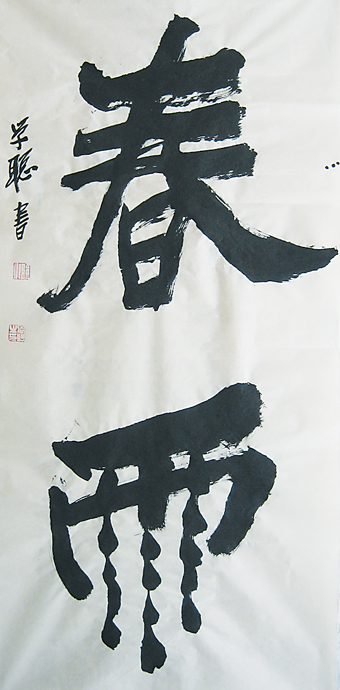 春雨
学聪书